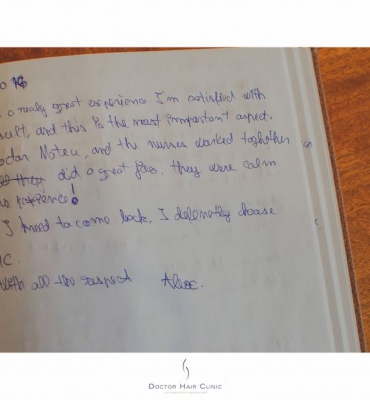 a really great experience. I'm satisfied with
sult, and this is the most important aspect.
and the nurses worked toghether
did a great job, they were calm
!
I need to come back, I definetly choose
IC.
with all the respect Alex.
DOCTOR HAIR CLINIC